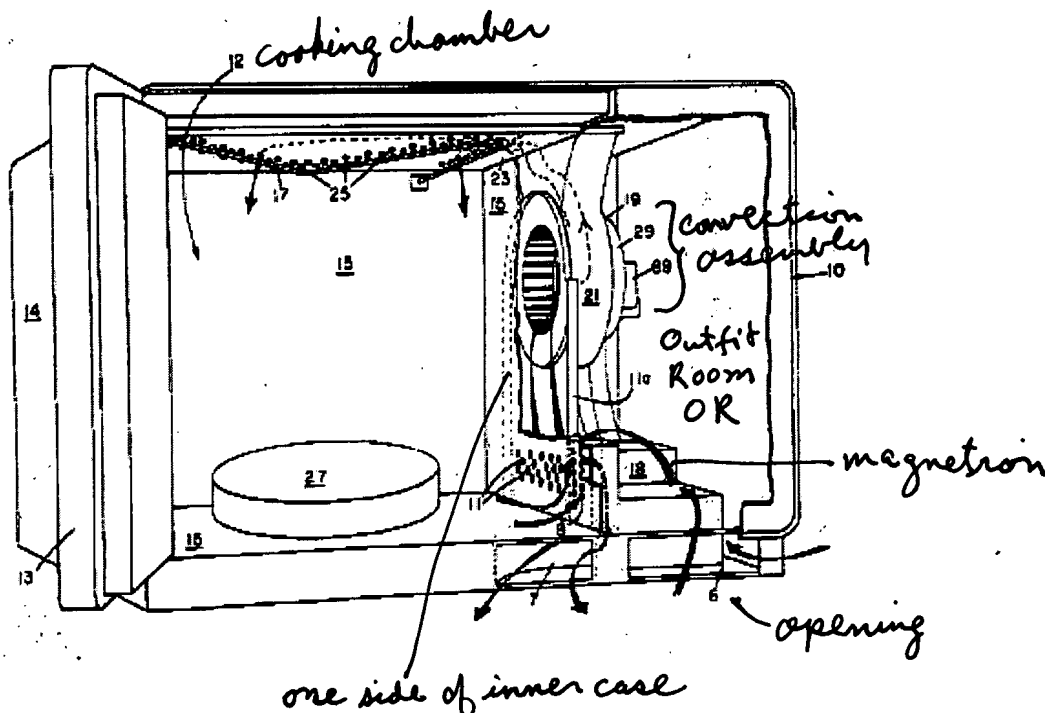 12 cooking chamber
17
25
23
15
19
29
convection
assembly
15
89
10
14
21
Outfit
Room
OR
110
magnetron
18
27
11
8
15
13
7
6
opening
one side of inner case